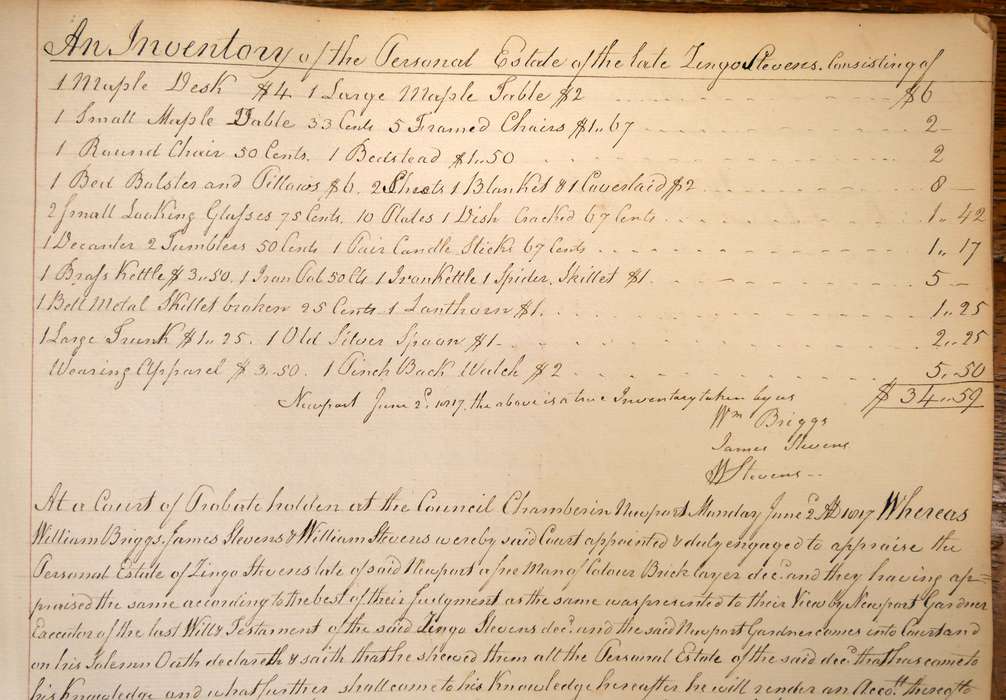 An Inventory of the Personal Estate of the late Zingo Stevens. Consisting of
1 Maple Desk $4 1 Large Maple Table $2 $6
1 Small Maple Table 33 Cents 5 Framed Chairs $1.. 67 2 -
1 Round Chair 50 Cents. 1 Bedstead $1..50 2
1 Bed Bolster and Pillows $6. 2 Sheets 1 Blanket & 1 Coverlaid $2 8 -
2 Small Looking Glasses 75 Cents. 10 Plates 1 Dish Cracked 67 Cents 1.. 42
1 Decanter 2 Tumblers 50 Cents 1 Pair Candle Sticks 67 Cents 1.. 17
1 Brass Kettle $3..50. 1 Iron Pot 50 Cts. 1 Iron Kettle 1 Spider, Skillet $1. 5 -
1 Bell Metal Skillet broken 25 Cents 1 Lanthorn $1. 1.. 25
1 Large Trunk $1.. 25. 1 Old Silver Spoon $1- 2.. 25
Wearing Apparel $3..50. 1 Pinch Back Watch $2 5..50
$34..59
Newport June 2d. 1817. the above is a true Inventory taken by us
Wm Briggs
James Stevens
W Stevens
At a Court of Probate holden at the Council Chamber in Newport Monday June 2d AD 1817 Whereas
William Briggs, James Stevens & William Stevens were by said Court appointed & duly engaged to appraise the
Personal Estate of Zingo Stevens late of said Newport a free Man of Colour Brick layer decd. and they having ap=
praised the same according to the best of their Judgment as the same was presented to their View by Newport Gardner
Executor of the last Will & Testament of the said Zingo Stevens decd. and the said Newport Gardner comes into Court and
on his Solemn Oath declareth & saith that he shewed them all the Personal Estate of the said decd. that has come to
his Knowledge and what further shall come to his Knowledge hereafter he will render an Accott. thereof to